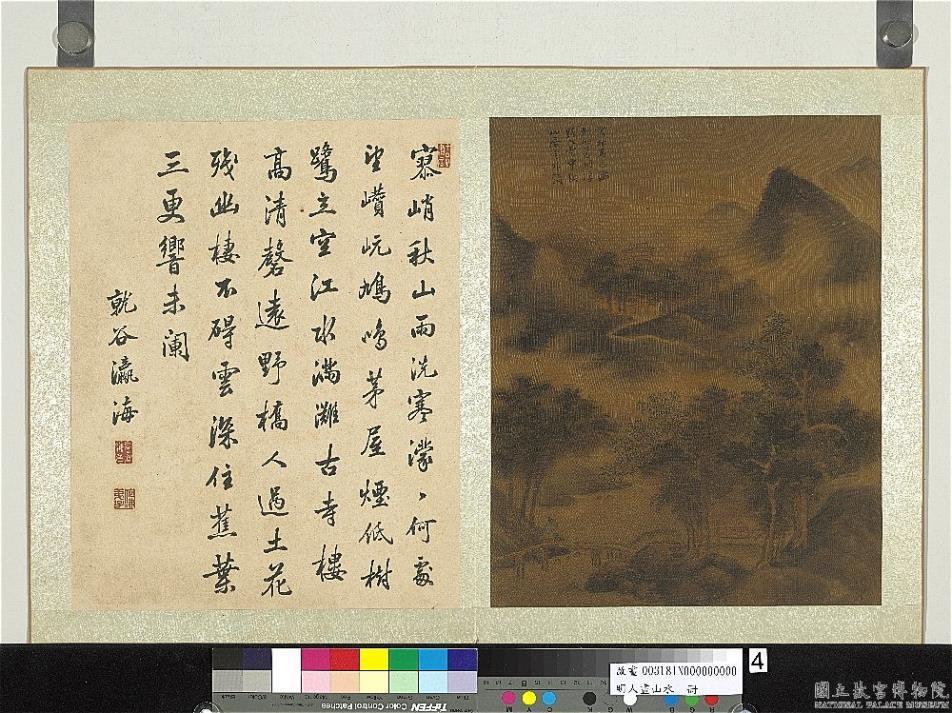 峭秋山雨洗寒濛〻何處
望巑岏鳩鳴茅屋煙低樹
鷺立空江水滿灘古寺樓
高清磬遠野橋人過土花
殘幽棲不礙雲深住蕉葉
三更響未闌
就谷瀛海
故畫 003181N000000000
明人畫山水 冊
4
TIFFEN Color Control Patches
國立故宮博物院
NATIONAL PALACE MUSEUM